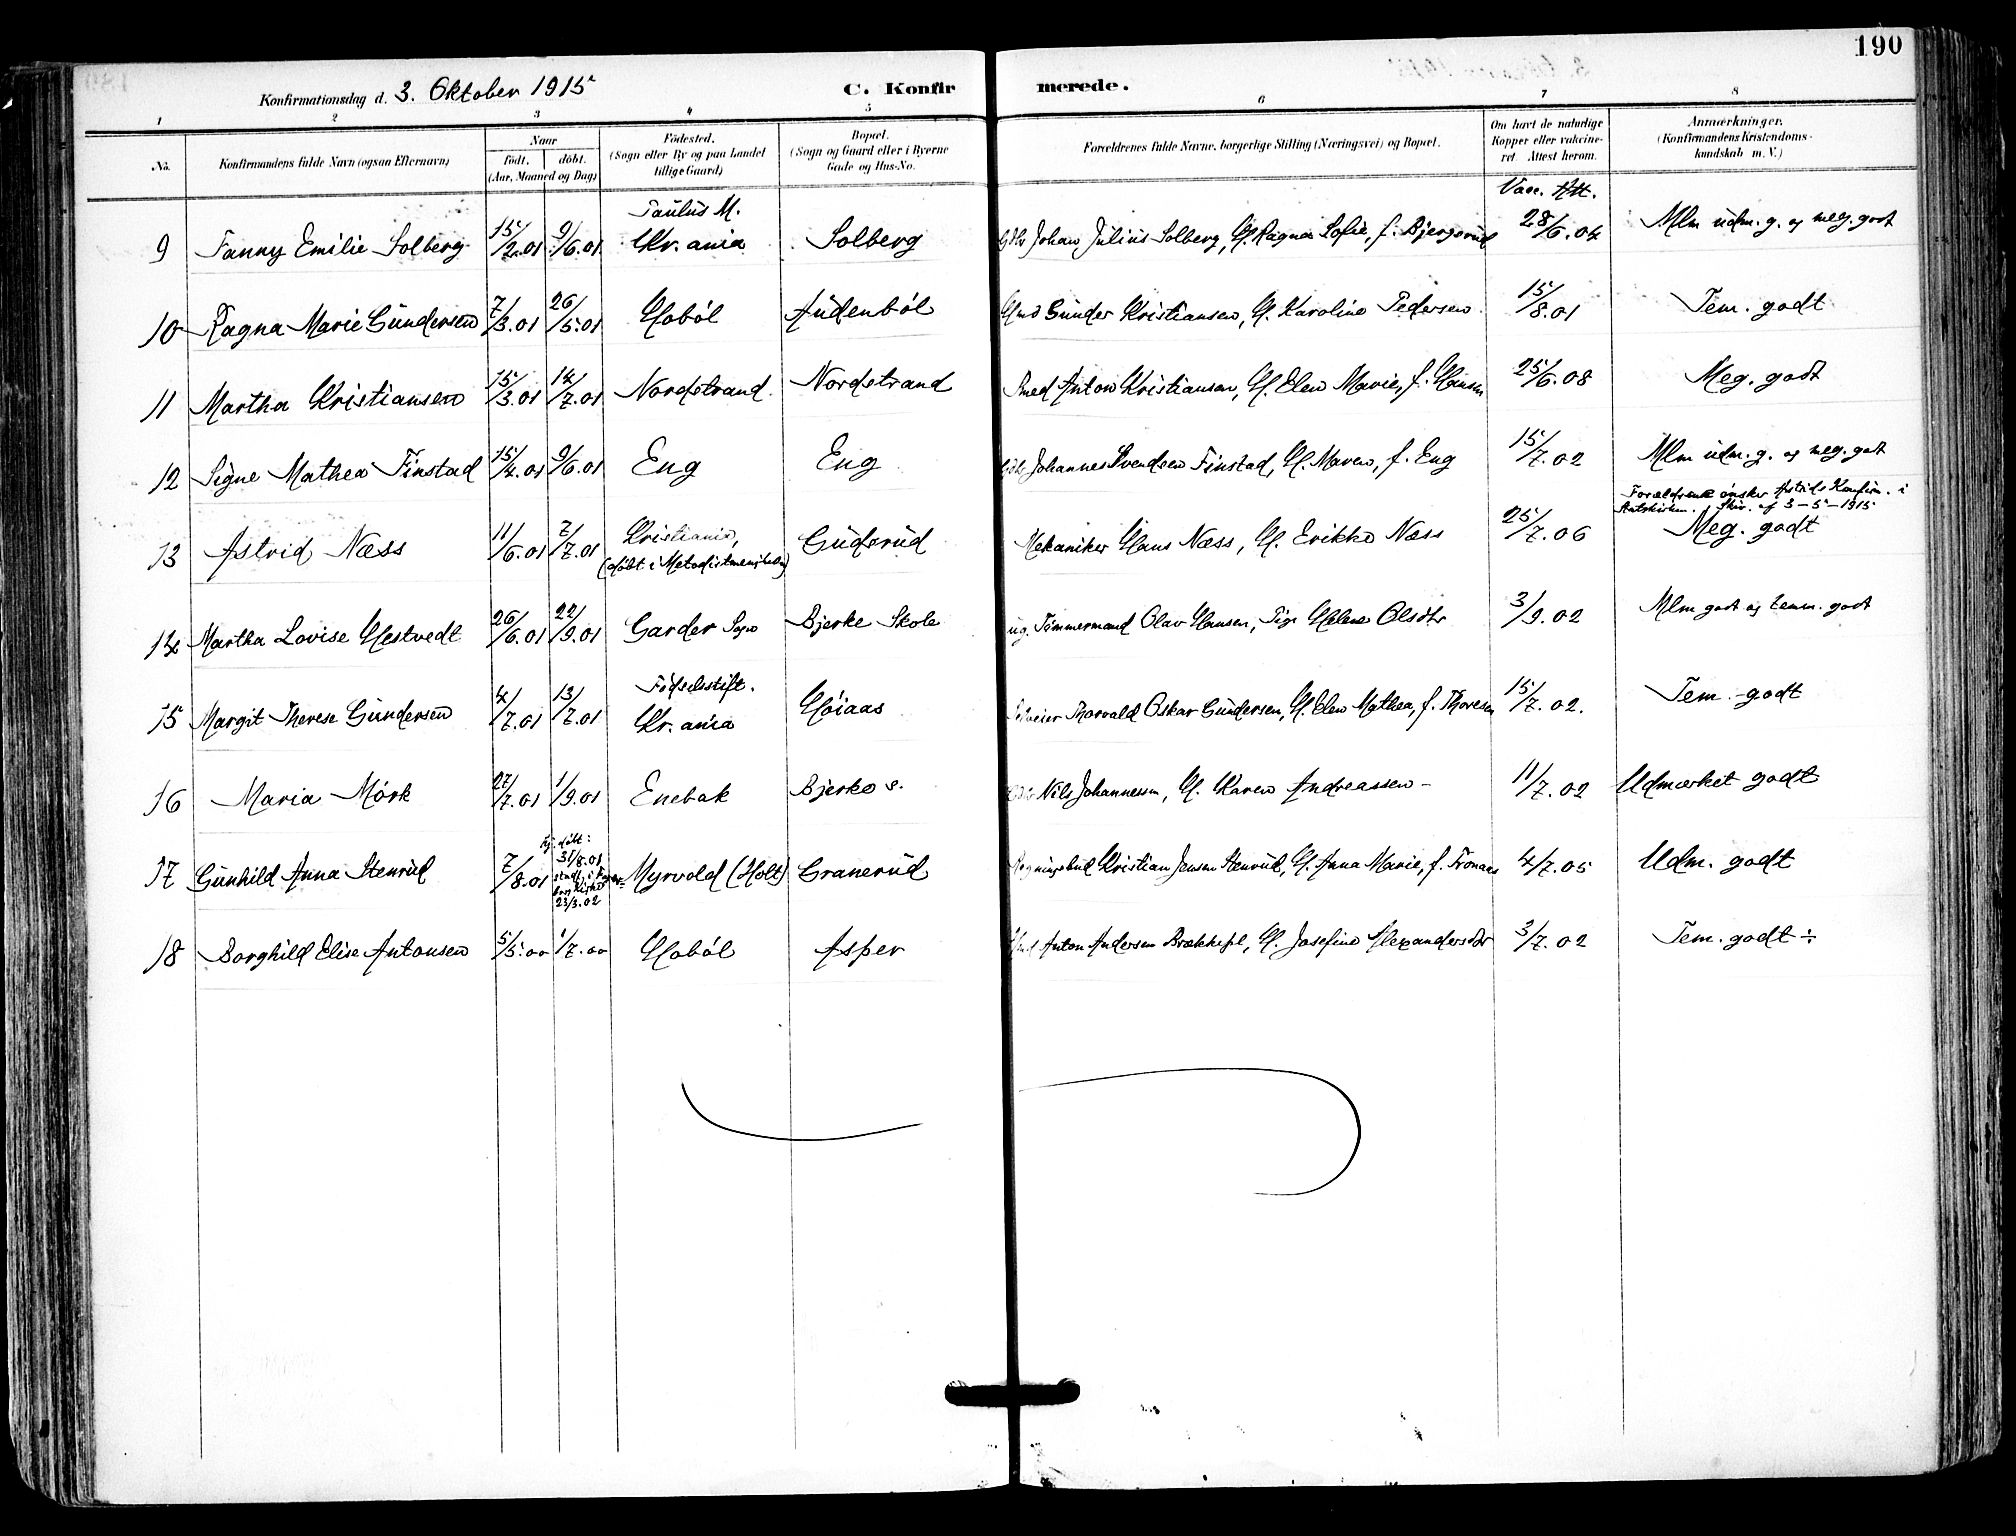 190
Konfirmationsdag d. 3. Oktober 1915 C. Konfir merede.
1 2 3 4 5 6 7 8
No. Konfirmandens fulde Navn (ogsaa Efternavn) Naar født. døbt. (Aar, Maaned og Dag) Fødested. (Sogn eller By og paa Landet tillige Gaard) Bopæl. (Sogn og Gaard eller i Byerne Gade og Hus-No. Forældrenes fulde Navne, borgerlige Stilling (Næringsvei) og Bopæl. Om havt de naturlige Kopper eller vakcineret. Attest herom. Anmærkninger. (Konfirmandens Kristendomskundskab m. V.)
Paulus M. Vacc. Att.
9 Fanny Emilie Solberg 15/2.01 9/6.01 Kr.ania Solberg Johan Julius Solberg, H. Ragna Sofie, f. Bjergerud 28/6.04 Mlm udm. g. og meg. godt
10 Ragna Marie Gundersen 7/3.01 26/5.01 Hobøl Audenbøl Gunder Kristiansen, H. Karoline Pedersen 15/8.01 Tem. godt
11 Martha Kristiansen 15/3.01 14/7.01 Nordstrand Nordstrand Smed Anton Kristiansen, H. Elen Marie, f. Hansen 25/6.08 Meg. godt
12 Signe Mathea Finstad 15/4.01 9/6.01 Eng Eng Johannes Svendsen Finstad, H. Maren, f. Eng 15/7.02 Mlm udm. g. og meg. godt
Forældrene ønsker Astrids Konfirm. i
Skriv. af 3-5-1915
13 Astrid Næss 11/6.01 7/7.01 Kristiania, (døbt i Metodistmenigheden) Guderud Mekaniker Hans Næss, H. Erikke Næss 25/7.06 Meg. godt
14 Martha Lovise Hestvedt 26/6.01 22/9.01 Garder Sogn Bjerke Skole ug. Tømmermand Olav Hansen, Pige Helene Olsdtr 3/9.02 Mlm godt og temm. godt
Fødselsstift.
15 Margit Therese Gundersen 4/7.01 13/7.01 Kr.ania Høiaas Thorvald Oskar Gundersen, H. Elen Mathea, f. Thoresen 15/7.02. Tem. godt
16 Maria Mørk 27/7.01 1/9.01 Enebak Bjerke s. Nils Johannessen, H. Karen Andreassen 11/7.02 Udmærket godt
17 Gunhild Anna Stenrud 7/8.01 Hj. døbt: 31/8.01 stadf. i Kirke 23/3.02 Myrvold (Holt) Granerud Kristian Jensen Stenrud, H. Anna Marie, f. Tronaas 4/7.05 Udm. godt
18 Borghild Elise Antonsen 5/5.00 1/7.00 Hobøl Asper Anton Andersen Brækkepl, H. Josefine Alexandersdtr 3/7.02 Tem. godt ÷